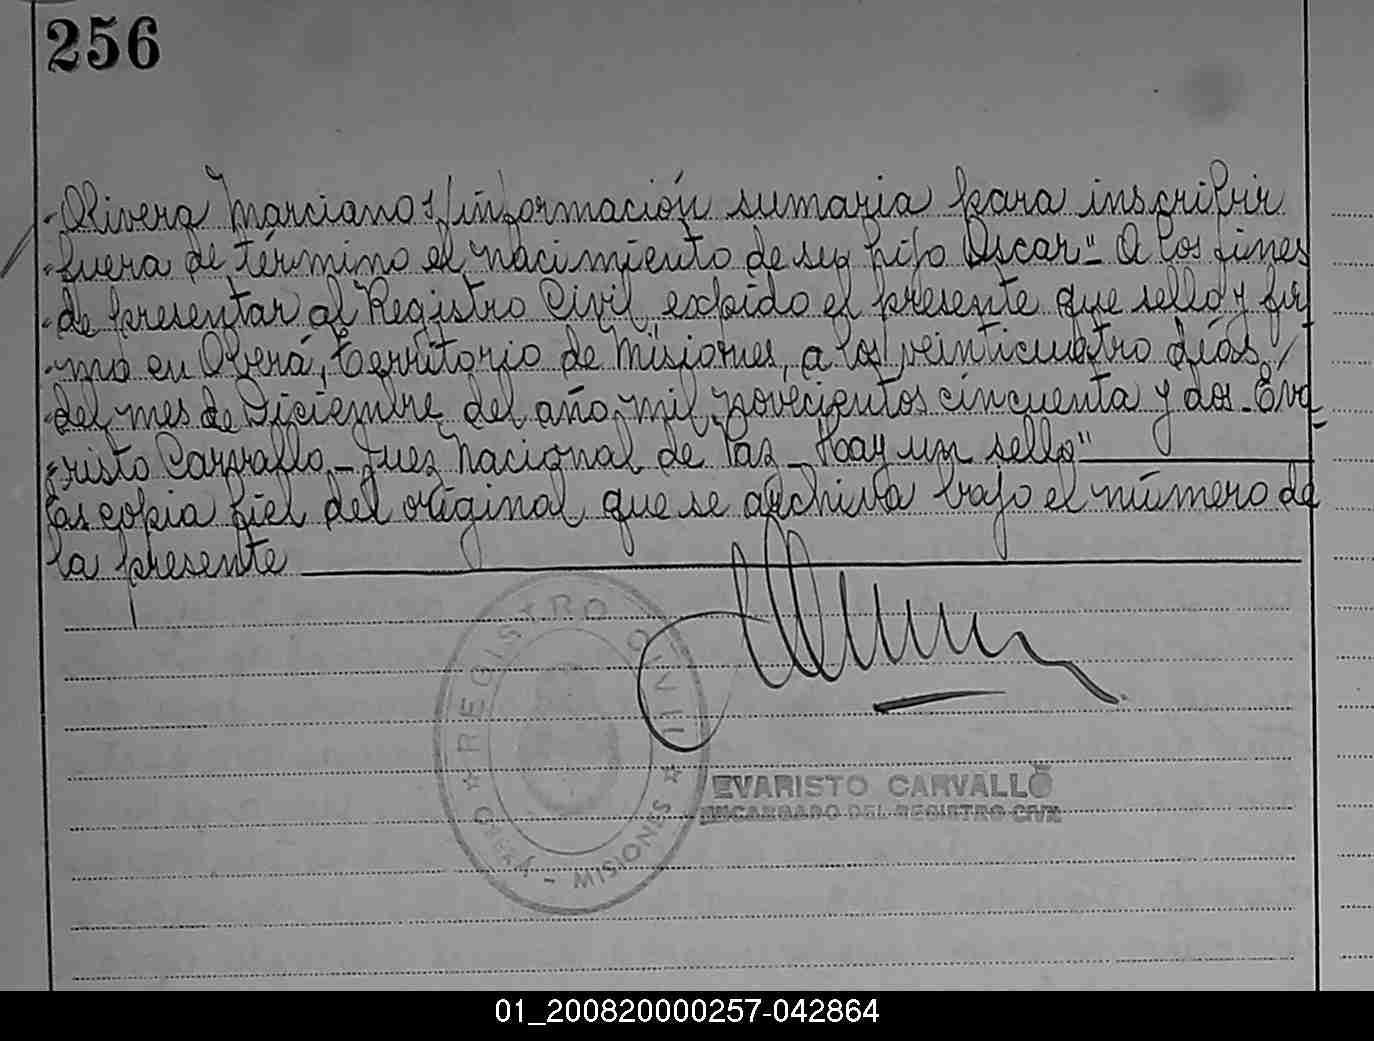 256
Olivera Marciano s/información sumaria para inscribir
fuera de término el nacimiento de su hijo Oscar"- A los fines
de presentar al Registro Civil, expido el presente que sello y fir
mo en Oberá, territorio de Misiones, a los veinticuatro días
del mes de Diciembre del año mil novecientos cincuenta y dos.- Eva-
risto Carvallo.- Juez Nacional de Paz - Hay un sello"
Es copia fiel del original que se archiva bajo el número de
la presente
REGISTRO CIVIL
EVARISTO CARVALLO
ENCARGADO DEL REGISTRO CIVIL
MISIONES
01_200820000257-042864